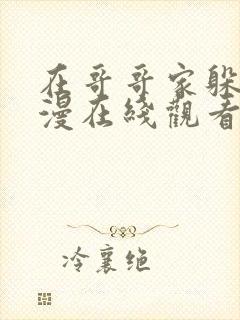 在哥哥家躲
漫在线觀看
冷襄绝